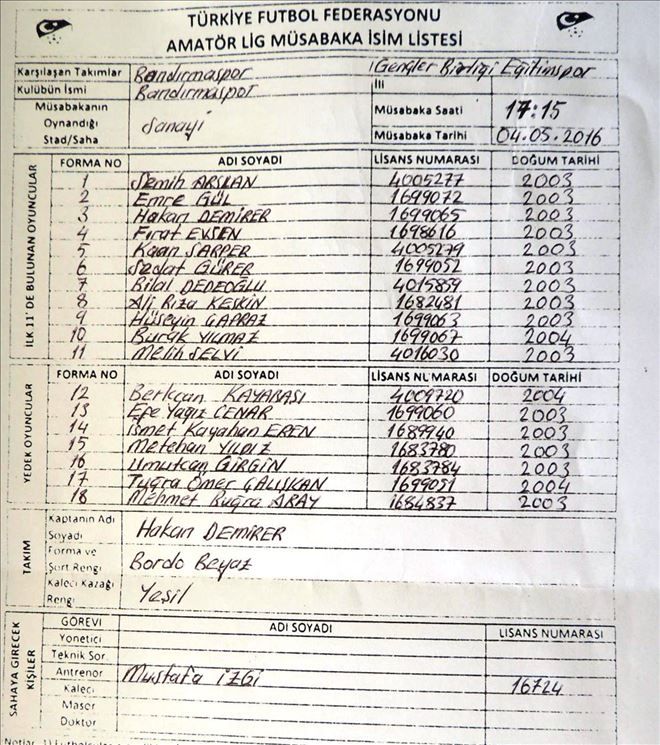 TÜRKİYE FUTBOL FEDERASYONU
AMATÖR LİG MÜSABAKA İSİM LİSTESİ
Karşılaşan Takımlar Bandırmaspor Gençler Birliği Eğitimspor
Kulübün İsmi Bandırmaspor İli
Müsabakanın Oynandığı Stad/Saha Sanayi Müsabaka Saati 17:15
Müsabaka Tarihi 04.05.2016
İLK 11' DE BULUNAN OYUNCULAR
FORMA NO ADI SOYADI LİSANS NUMARASI DOĞUM TARİHİ
1 Semih ARSLAN 4005277 2003
2 Emre GÜL 1699072 2003
3 Hakan DEMİRER 1699065 2003
4 Fırat EVSEN 1698616 2003
5 Kaan SARPER 4005279 2003
6 Sedat GÜRER 1699052 2003
7 Bilal DEDEOĞLU 4015859 2003
8 Ali Rıza KESKİN 1682481 2003
9 Hüseyin ÇAPRAZ 1699063 2003
10 Burak YILMAZ 1699067 2004
11 Melih SELVİ 4016030 2003
YEDEK OYUNCULAR
FORMA NO ADI SOYADI LİSANS NUMARASI DOĞUM TARİHİ
12 Berkcan KAYABAŞI 4009720 2004
13 Efe Yağız CENAR 1699060 2003
14 İsmet Kayahan EREN 1689940 2003
15 Metehan YILDIZ 1683780 2003
16 Umutcan GİRGİN 1683784 2003
17 Tuğra Ömer ÇALIŞKAN 1699051 2004
18 Mehmet Buğra ARAY 1684837 2003
TAKIM
Kaptanın Adı Soyadı Hakan DEMİRER
Forma ve Şort Rengi Bordo Beyaz
Kaleci Kazağı Rengi Yeşil
SAHAYA GİRECEK KİŞİLER
GÖREVİ ADI SOYADI LİSANS NUMARASI
Yönetici
Teknik Sor.
Antrenör Mustafa İZGİ 16724
Kaleci
Masör
Doktor